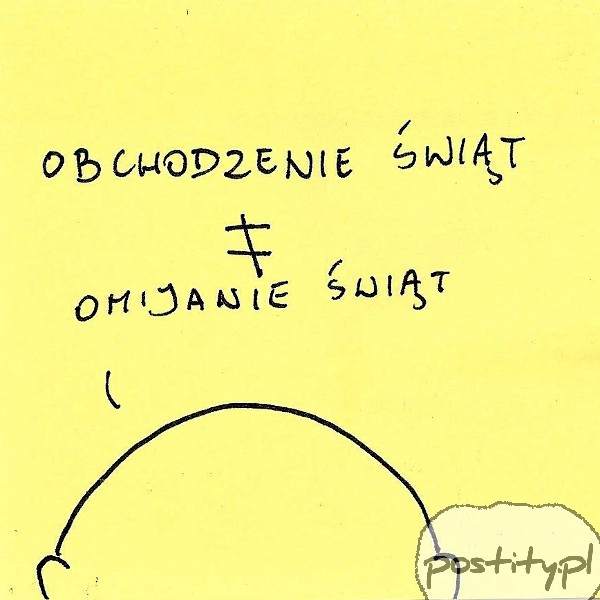 OBCHODZENIE ŚWIĄT
≠
OMIJANIE ŚWIĄT
postity.pl